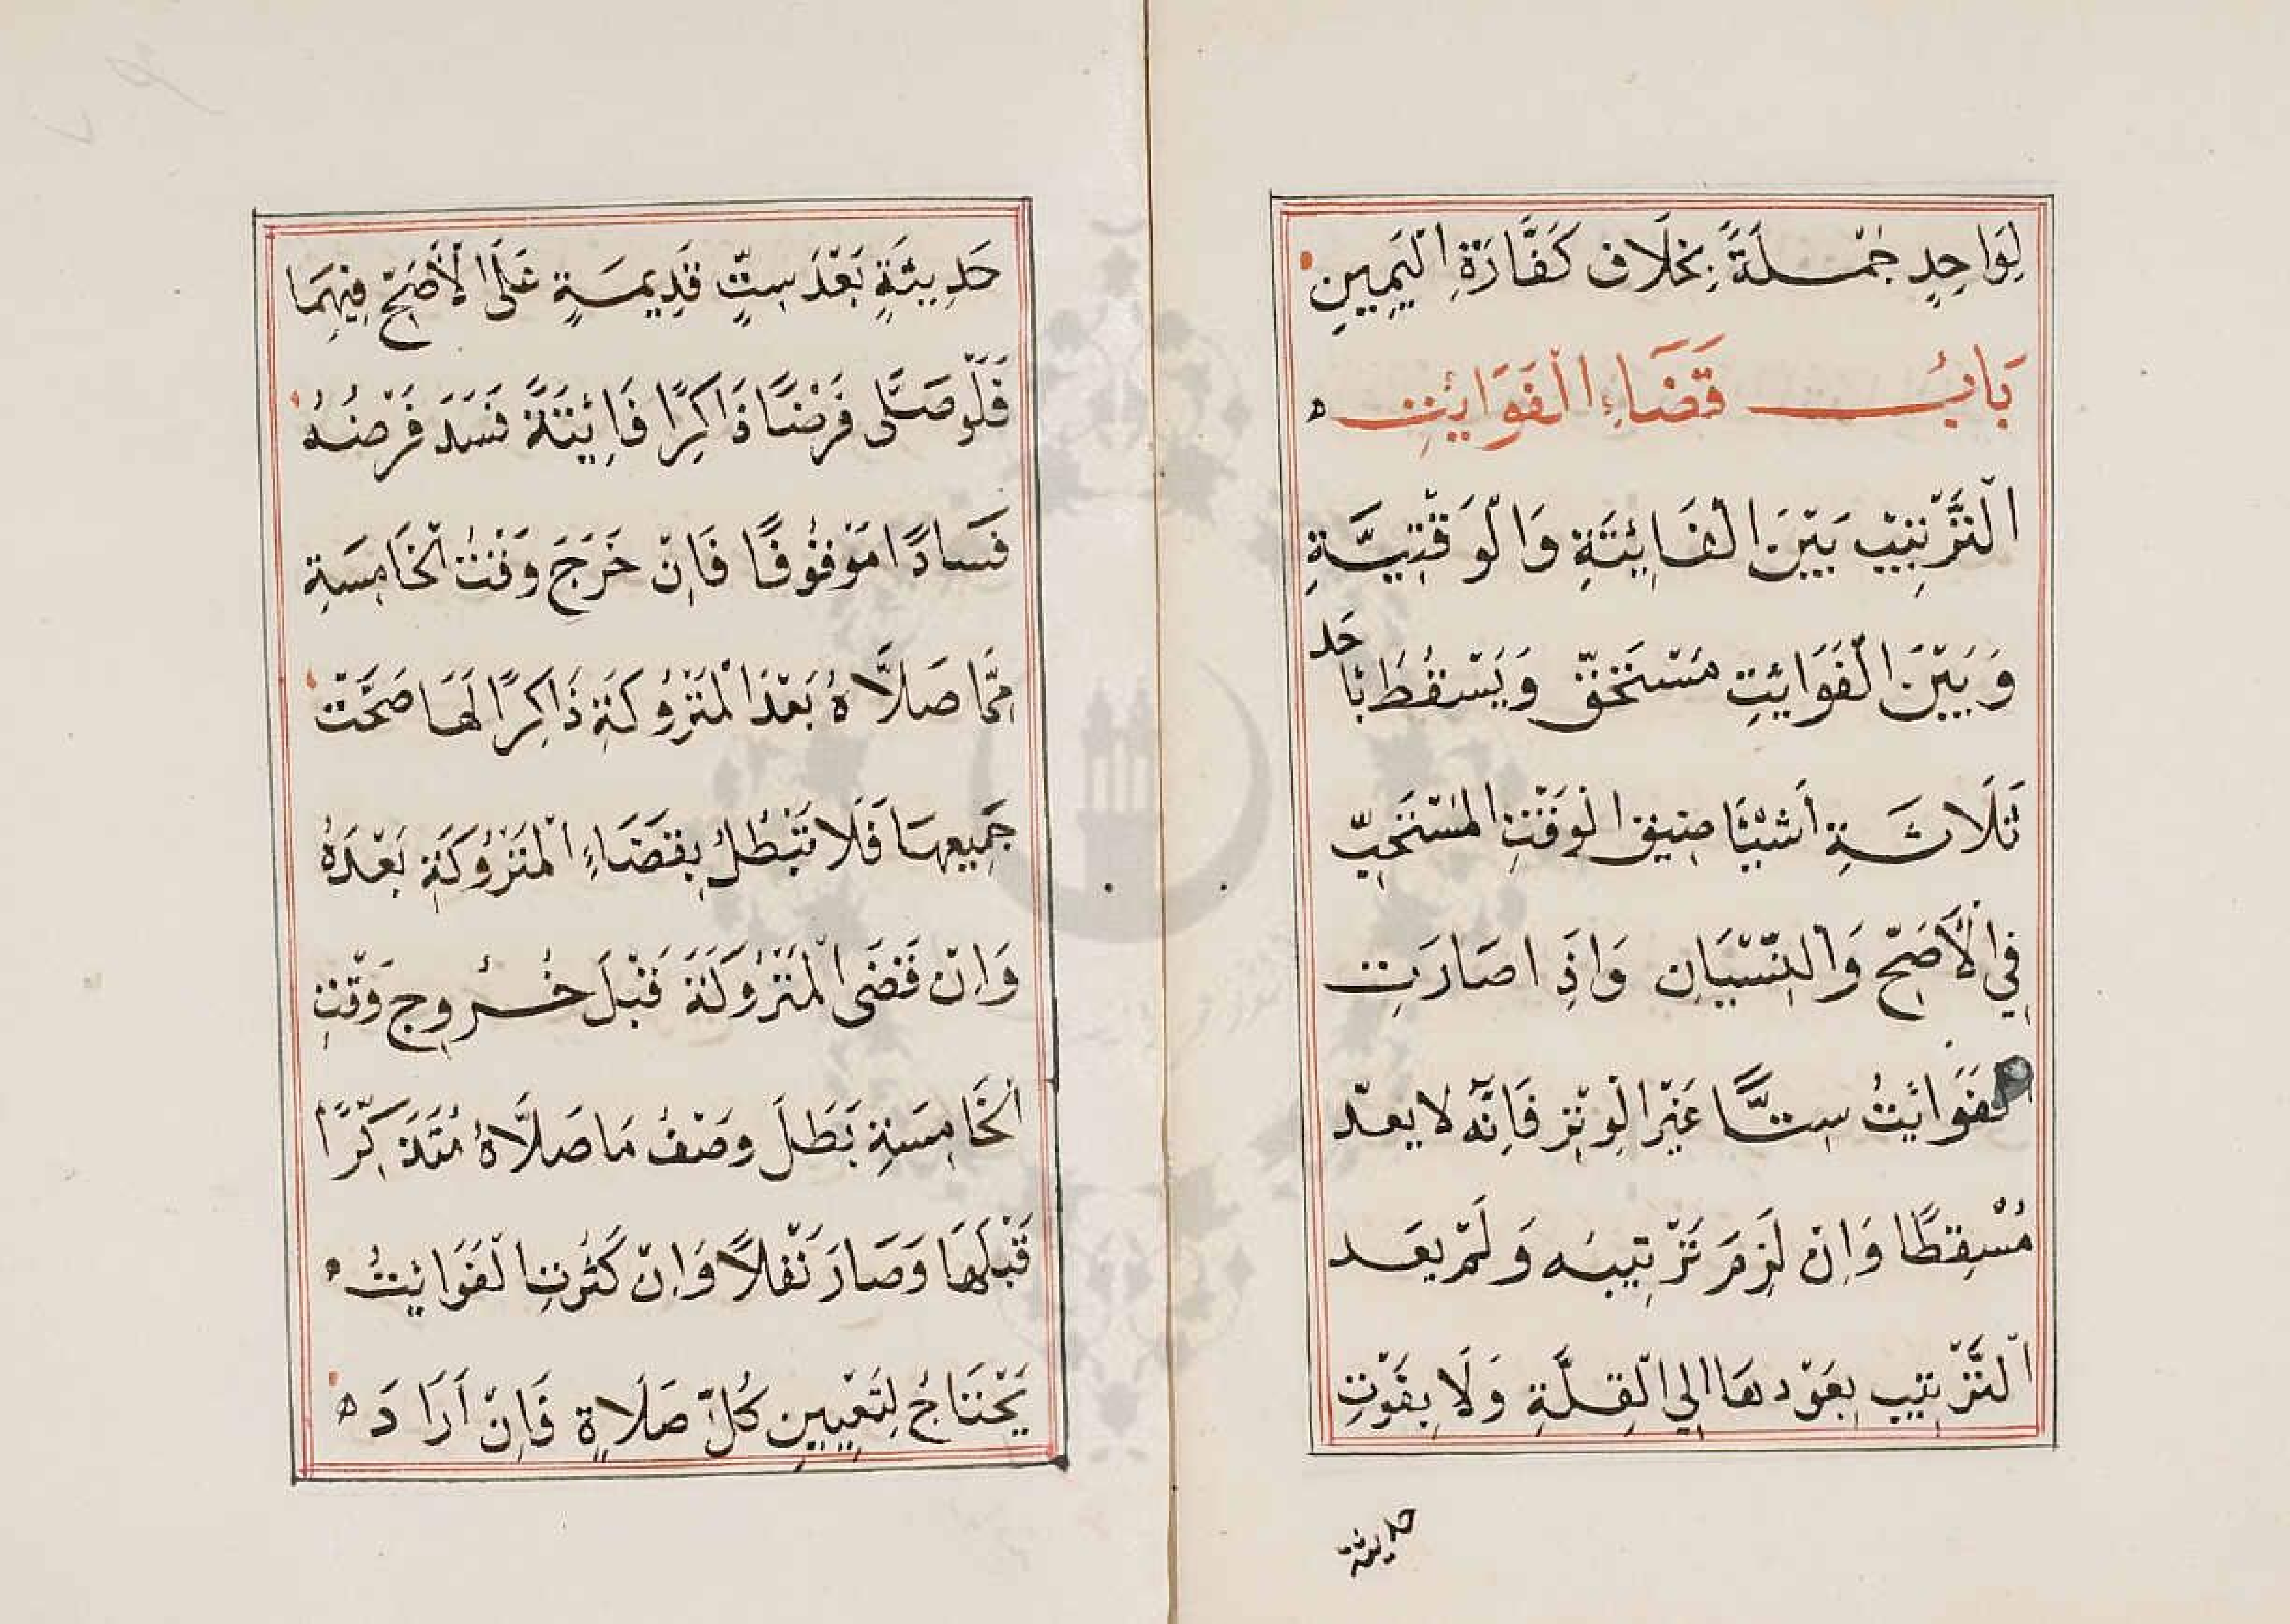 لِوَاحِدٍ جُمْلَةً بِخِلَافِ كَفَّارَةِ الْيَمِينِ
بَابُ قَضَاءِ الْفَوَائِتِ ه
الْتَّرْتِيبُ بَيْنَ الْفَائِتَةِ وَالْوَقْتِيَّةِ
وَبَيْنَ الْفَوَائِتِ مُسْتَحَقٌّ وَيَسْقُطُ بِاَحَدِ
ثَلَاثَةِ اَشْئَا ضِيقِ الْوَقْتِ الْمُسْتَحَبِّ
فِي الْأَصَحِّ وَالْنِّسْيَانِ وَاِذَا صَارَتِ
الْفَوَائِتُ سِتًّا غَيْرَ الْوِتْرِ فَاِنَّهُ لا يعدّ
مُسْقِطًا وَاِنْ لَزِمَ تَرْتِيبُه وَلَمْ يَعُد
الْتَّرْتِيبُ بِعَوْدِهَا اِلي الْقِلَّةِ وَلَا بِفَوْتِ
حديثة
حَدِيثَةٍ بَعْدَ سِتٍّ قَدِيمَةٍ عَلَى الْأَصَحِّ فِيْهِمَا
فَلَوْ صَلَّى فَرْضًا ذَاكِرًا فَائِتَةً فَسَدَ فَرْضُهُ
فَسَادًا مَوْقُوفًا فَاِنْ خَرَجَ وَقْتُ الْخَامِسَةِ
مِمَّا صَلَّاهُ بَعْدَ الْمَتْرُوكَةِ ذَاكِرًا لَهَا صَحَّتْ
جَمِيعهَا فَلَا تَبْطُلُ بِقَضَاءِ الْمَتْرُوكَةِ بَعْدَهُ
وَاِنْ قَضَى الْمَتْرُوكَةَ قَبْلَ خُرُوجِ وَقْتِ
الْخَامِسَةِ بَطَلَ وَصْفُ مَا صَلَّاهُ مُتَذَكِّرًا
قَبْلَهَا وَصَارَ نَفْلًا وَاِنْ كَثُرَتِ الْفَوَائِتُ ه
يَحْتَاجُ لِتَعْيِينِ كُلِّ صَلَاةٍ فَاِنْ اَرَادَ ه